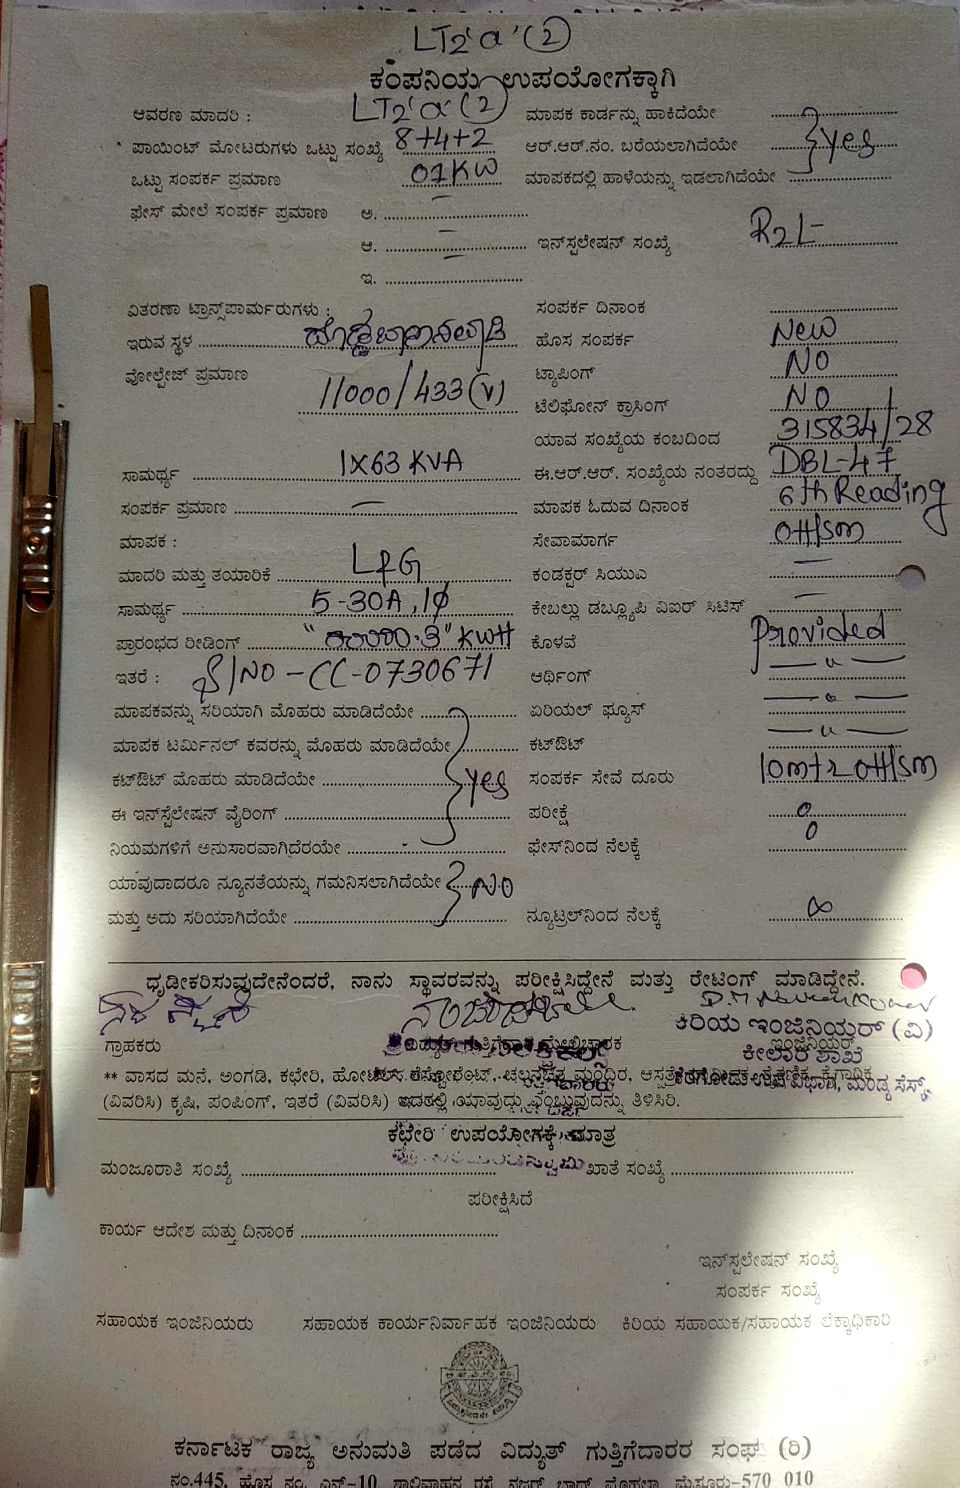 LT2'a'(2)
ಕಂಪನಿಯ ಉಪಯೋಗಕ್ಕಾಗಿ
ಆವರಣ ಮಾದರಿ : LT2'a'(2) ಮಾಪಕ ಕಾರ್ಡನ್ನು ಹಾಕಿದೆಯೇ
ಪಾಯಿಂಟ್ ಮೋಟರುಗಳು ಒಟ್ಟು ಸಂಖ್ಯೆ 8+4+2 ಆರ್.ಆರ್.ನಂ. ಬರೆಯಲಾಗಿದೆಯೇ Yes
ಒಟ್ಟು ಸಂಪರ್ಕ ಪ್ರಮಾಣ 01KW ಮಾಪಕದಲ್ಲಿ ಹಾಳೆಯನ್ನು ಇಡಲಾಗಿದೆಯೇ
ಫೇಸ್ ಮೇಲೆ ಸಂಪರ್ಕ ಪ್ರಮಾಣ ಅ. —
ಆ. — ಇನ್‌ಸ್ಟಲೇಷನ್ ಸಂಖ್ಯೆ R2L-
ಇ. —
ವಿತರಣಾ ಟ್ರಾನ್ಸ್‌ಫಾರ್ಮರುಗಳು : ಸಂಪರ್ಕ ದಿನಾಂಕ
ಇರುವ ಸ್ಥಳ ಹೊಸ ಸಂಪರ್ಕ New
ವೋಲ್ಟೇಜ್ ಪ್ರಮಾಣ 11000/433(V) ಟ್ಯಾಪಿಂಗ್ NO
ಟೆಲಿಫೋನ್ ಕ್ರಾಸಿಂಗ್ NO
ಯಾವ ಸಂಖ್ಯೆಯ ಕಂಬದಿಂದ 315834/28
ಸಾಮರ್ಥ್ಯ 1X63 KVA ಈ.ಆರ್.ಆರ್. ಸಂಖ್ಯೆಯ ನಂತರದ್ದು DBL-47
ಸಂಪರ್ಕ ಪ್ರಮಾಣ — ಮಾಪಕ ಓದುವ ದಿನಾಂಕ 6th Reading
ಮಾಪಕ : ಸೇವಾಮಾರ್ಗ OH/sm
ಮಾದರಿ ಮತ್ತು ತಯಾರಿಕೆ L&G ಕಂಡಕ್ಟರ್ ಸಿಯುಎ —
ಸಾಮರ್ಥ್ಯ 5-30A, 1ϕ ಕೇಬಲ್ಲು ಡಬ್ಲ್ಯೂಪಿ ವಿಐರ್ ಸಿಟಿಸ್ —
ಪ್ರಾರಂಭದ ರೀಡಿಂಗ್ "00000.3" KWH ಕೊಳವೆ Provided
ಇತರೆ : S/NO - CC-0730671 ಆರ್ಥಿಂಗ್ — " —
ಮಾಪಕವನ್ನು ಸರಿಯಾಗಿ ಮೊಹರು ಮಾಡಿದೆಯೇ ಏರಿಯಲ್ ಫ್ಯೂಸ್ — " —
ಮಾಪಕ ಟರ್ಮಿನಲ್ ಕವರನ್ನು ಮೊಹರು ಮಾಡಿದೆಯೇ ಕಟ್‌ಔಟ್ — " —
ಕಟ್‌ಔಟ್ ಮೊಹರು ಮಾಡಿದೆಯೇ Yes ಸಂಪರ್ಕ ಸೇವೆ ದೂರು 10m+2 OH/sm
ಈ ಇನ್‌ಸ್ಟೆಲೇಷನ್ ವೈರಿಂಗ್ ಪರೀಕ್ಷೆ 0
ನಿಯಮಗಳಿಗೆ ಅನುಸಾರವಾಗಿದೆರೆಯೇ ಫೇಸ್‌ನಿಂದ ನೆಲಕ್ಕೆ 0
ಯಾವುದಾದರೂ ನ್ಯೂನತೆಯನ್ನು ಗಮನಿಸಲಾಗಿದೆಯೇ NO
ಮತ್ತು ಅದು ಸರಿಯಾಗಿದೆಯೇ ನ್ಯೂಟ್ರಲ್‌ನಿಂದ ನೆಲಕ್ಕೆ ∞
ಧೃಡೀಕರಿಸುವುದೇನೆಂದರೆ, ನಾನು ಸ್ಥಾವರವನ್ನು ಪರೀಕ್ಷಿಸಿದ್ದೇನೆ ಮತ್ತು ರೇಟಿಂಗ್ ಮಾಡಿದ್ದೇನೆ.
ಕಿರಿಯ ಇಂಜಿನಿಯರ್ (ವಿ)
ಗ್ರಾಹಕರು ವಿದ್ಯುತ್ ಗುತ್ತಿಗೆದಾರ ಮೇಲ್ವಿಚಾರಕ ಇಂಜಿನಿಯರ್
ಕೀಲಾರ ಶಾಖೆ
** ವಾಸದ ಮನೆ, ಅಂಗಡಿ, ಕಛೇರಿ, ಹೋಟೆಲ್, ರೆಸ್ಟೋರೆಂಟ್, ಚಲನಚಿತ್ರ ಮಂದಿರ, ಆಸ್ಪತ್ರೆ
ಕೆರಗೋಡು ಉಪ ವಿಭಾಗ, ಮಂಡ್ಯ ಸೆಸ್ಕ್.
(ವಿವರಿಸಿ) ಕೃಷಿ, ಪಂಪಿಂಗ್, ಇತರೆ (ವಿವರಿಸಿ) ಇದರಲ್ಲಿ ಯಾವುದ್ದು ಎಂಬ್ಬುವುದನ್ನು ತಿಳಿಸಿರಿ.
ಕಛೇರಿ ಉಪಯೋಗಕ್ಕೆ ಮಾತ್ರ
ಮಂಜೂರಾತಿ ಸಂಖ್ಯೆ ಖಾತೆ ಸಂಖ್ಯೆ
ಪರೀಕ್ಷಿಸಿದೆ
ಕಾರ್ಯ ಆದೇಶ ಮತ್ತು ದಿನಾಂಕ
ಇನ್‌ಸ್ಟಲೇಷನ್ ಸಂಖ್ಯೆ
ಸಂಪರ್ಕ ಸಂಖ್ಯೆ
ಸಹಾಯಕ ಇಂಜಿನಿಯರು ಸಹಾಯಕ ಕಾರ್ಯನಿರ್ವಾಹಕ ಇಂಜಿನಿಯರು ಕಿರಿಯ ಸಹಾಯಕ/ಸಹಾಯಕ ಲೆಕ್ಕಾಧಿಕಾರಿ
ಕರ್ನಾಟಕ ರಾಜ್ಯ ಅನುಮತಿ ಪಡೆದ ವಿದ್ಯುತ್ ಗುತ್ತಿಗೆದಾರರ ಸಂಘ (ರಿ)
ನಂ.445, ಹೊಸ ನಂ. ಎನ್-10, ಶಾಲಿವಾಹನ ರಸ್ತೆ, ನಜರ್ ಬಾದ್ ಮೊಹಲ್ಲಾ, ಮೈಸೂರು-570 010